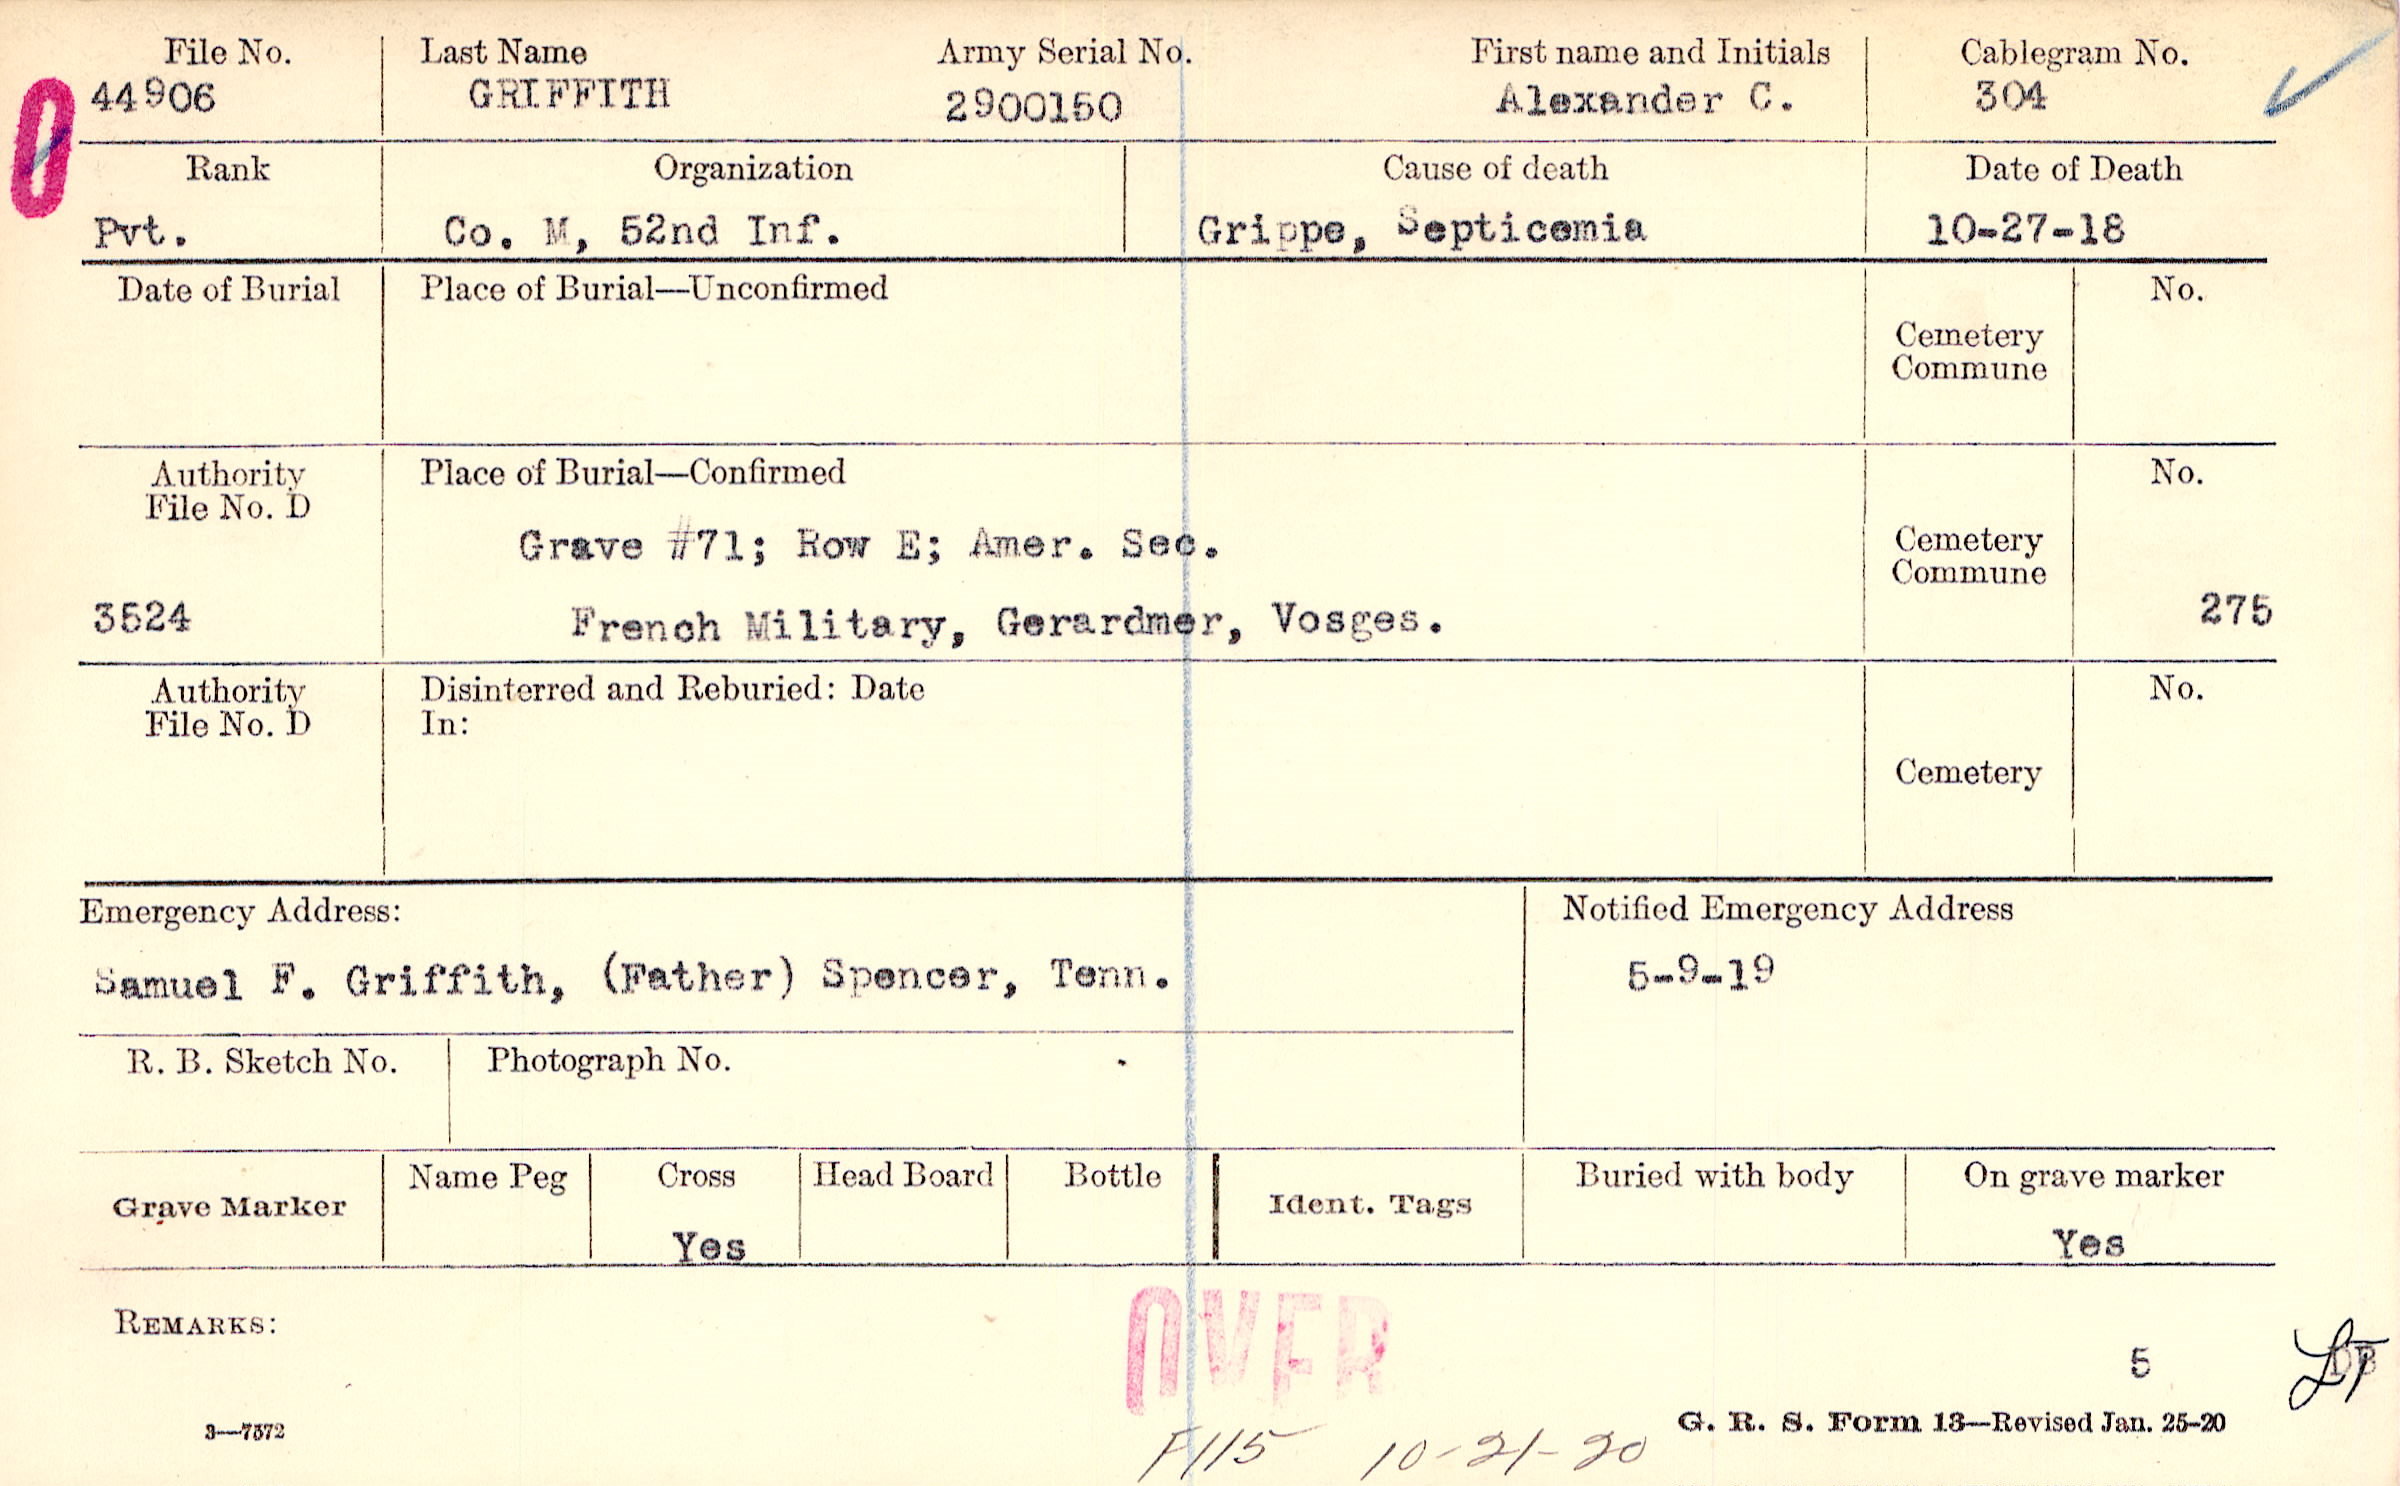 File No. Last Name Army Serial No. First name and Initials Cablegram No.
44906 GRIFFITH 2900150 Alexander C. 304
Rank Organization Cause of death Date of Death
Pvt. Co. M, 52nd Inf. Grippe, Septicemia 10-27-18
Date of Burial Place of Burial—Unconfirmed No.
Cemetery
Commune
Authority Place of Burial—Confirmed No.
File No. D
Grave #71; Row E; Amer. Sec. Cemetery
Commune
3524 French Military, Gerardmer, Vosges. 275
Authority Disinterred and Reburied: Date No.
File No. D In:
Cemetery
Emergency Address: Notified Emergency Address
Samuel F. Griffith, (Father) Spencer, Tenn. 5-9-19
R. B. Sketch No. Photograph No.
Name Peg Cross Head Board Bottle Buried with body On grave marker
Grave Marker Ident. Tags
Yes Yes
OVER
REMARKS:
5
3—7572 G. R. S. Form 13—Revised Jan. 25-20
F115 10-21-20